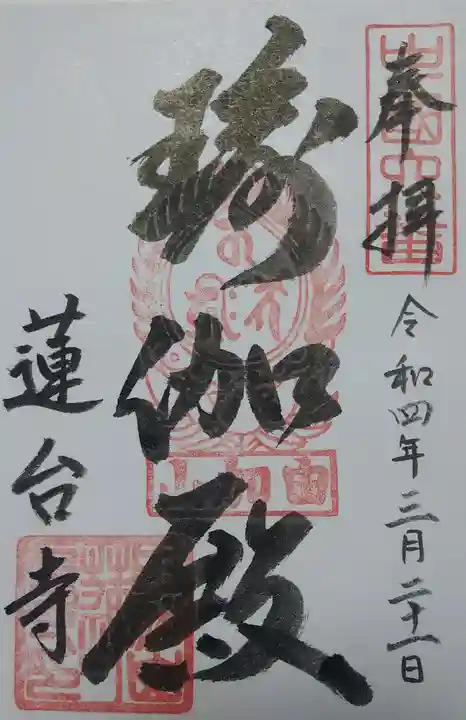 奉拝
令和四年三月二十一日
瑜伽殿
由加山
蓮台寺